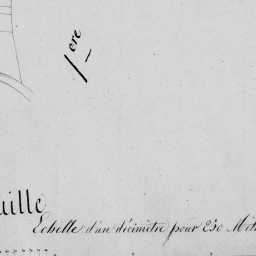 1ere
uille
Echelle d'un décimètre pour 250 Mèt